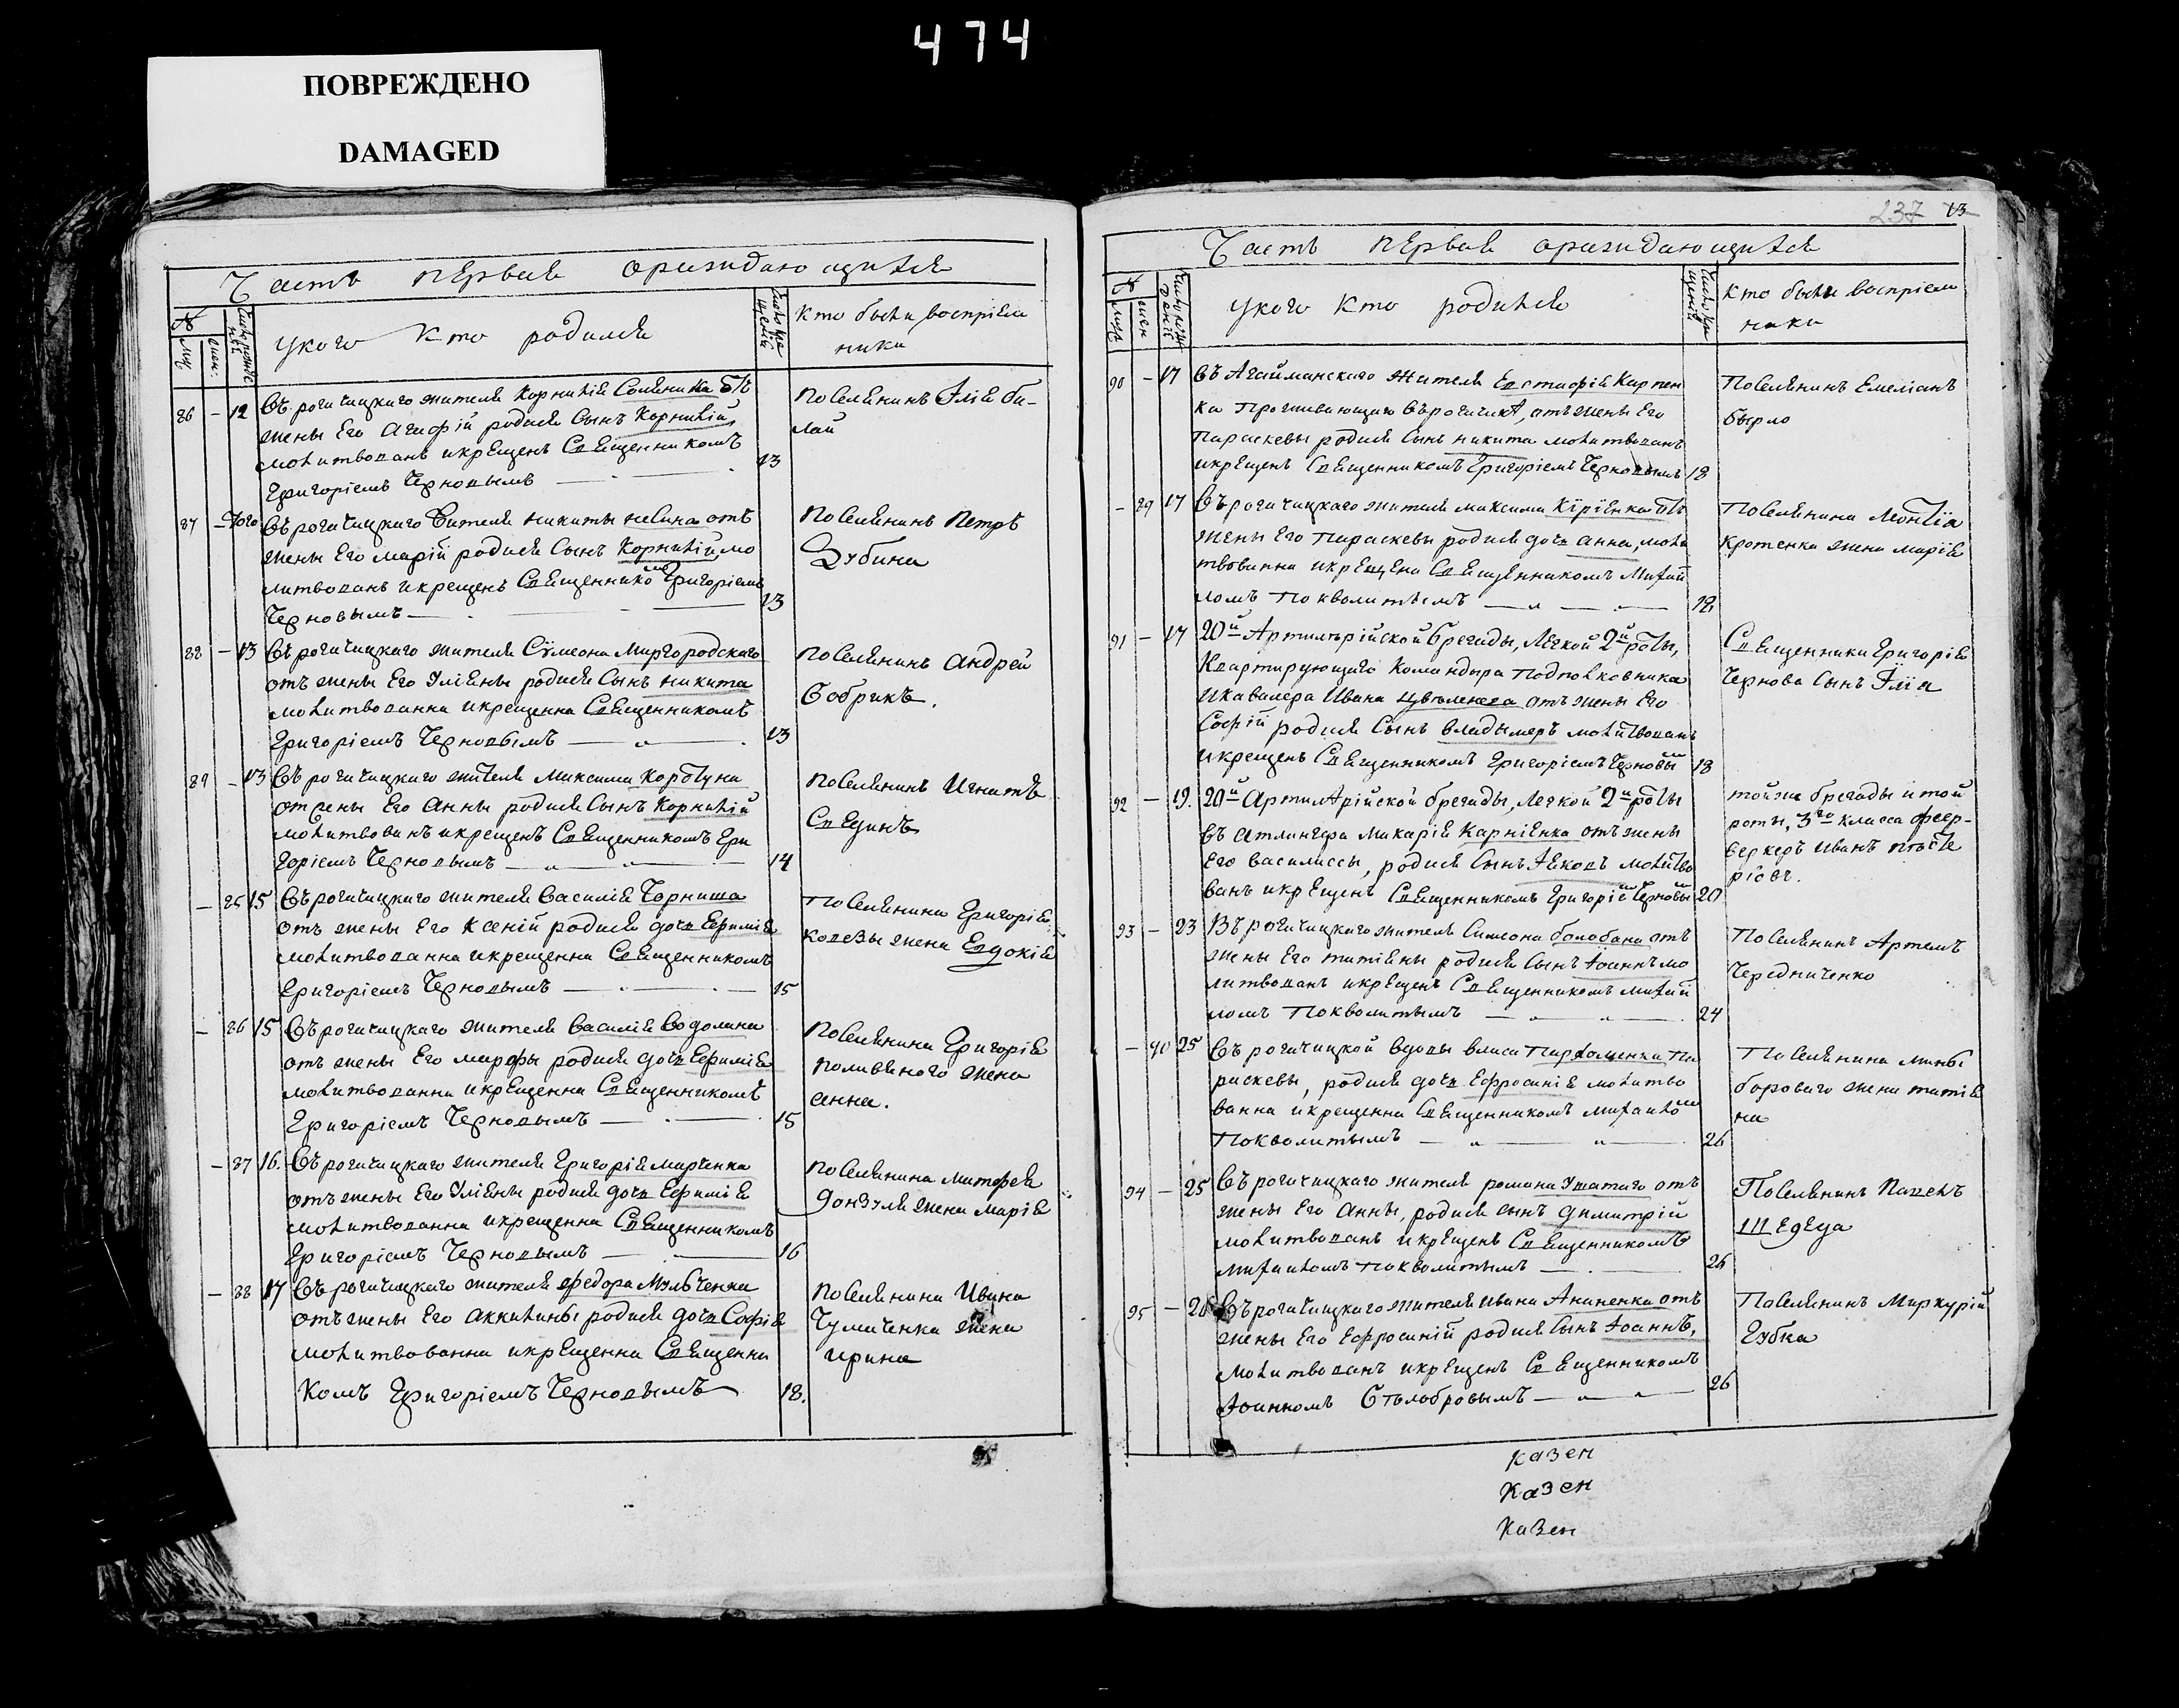 474
ПОВРЕЖДЕНО
DAMAGED
Часть первая ораждающихся
№
муж
жен.
у кого кто родился
Кто были восприем
ники
86 – 12 Въ рогачицкаго жителя Корнилія Соляника отъ
жены Его Агафій родился Сынъ Корнилій
молитвованъ и крещенъ Священникомъ
Григоріемъ Черновымъ — 13
Поселянинъ Илія би-
лай
87 – Того Въ рогачицкаго жителя никиты невина отъ
жены Его марій родился Сынъ Корнилій, мо
литвованъ и крещенъ Священнико Григоріемъ
Черновымъ — 13
Поселянинъ Петръ
Зубина
88 – 13 Въ рогачицкаго жителя Сумеона Миргородскаго
отъ жены Его Уліяны родился Сынъ никита
молитвованна и крещенна Священникомъ
Григоріемъ Черновымъ — 13
Поселянинъ Андрей
Бобрикъ.
89 – 13 Въ рогачицкаго жителя Максима Корбтуна
от жены Его Анны родился Сынъ Корнилій
молитвованъ и крещенъ Священникомъ Гри
горіемъ Черновымъ — 14
Поселянинъ Игнатъ
Сведунъ
– 85 15 Въ рогачицкаго жителя Василія Чорниша
отъ жены Его Ксеній родися дочь Ефимія
молитвованна и крещенна Священникомъ
Григоріемъ Черновымъ — 15
Поселянина Григорія
Ковезы жена Евдокія
– 86 15 Въ рогачицкаго жителя Василія Водолаги
отъ жены Его марфы родися дочь Ефимія
молитвованна и крещенна Священникомъ
Григоріемъ Черновымъ — 15
Поселянина Григорія
поливяного жена
анна.
– 87 16. Въ рогачицкаго жителя Григорія марченка
отъ жены Его Уліяны родися дочь Ефимія
молитвованна и крещенна Священникомъ
Григоріемъ Черновымъ — 16
поселянина митофея
донзуля жена марія
– 88 17 Въ рогачицкаго жителя федора Мульченка
отъ жены Его Аккилины родися дочь Софія
молитвованна и крещенна Священни
комъ Григоріемъ Черновымъ 18.
Поселянина Ивана
Чумаченка жена
ирина
237 13
Часть первая ораждающихся
№
муж
жен
у кого кто родился
Кто были восприем
ники
90 – 17 Въ Агайманскаго жителя Евстафій Карпен
ка проживающаго въ рогачикѣ, отъ жены Его
параскевы родися Сынъ никита молитвованъ
и крещенъ Священникомъ Григоріемъ Черновымъ 18
Поселянинъ Емеліанъ
бырло
– 89 17 Въ рогачицкаго жителя максима Кіріенка отъ
жены Его Параскевы родися дочь анна, моли
твованна и крещена Священникомъ Михаи
ломъ Поквалитымъ — 18
Поселянина Леонтія
кротенка жена марія
91 – 17 20й Артилерійской брегады, Легкой 2й роты,
Квартирующаго Командира Подполковника
и кавалера Ивана отъ жены Его
Софій родися Сынъ владымеръ молитвованъ
и крещенъ Священникомъ Григоріемъ Черновым 18
Священника Григорія
Чернова Сынъ Ілія
92 – 19. 20й Артилерійской брегады, легкой 2й роты
въ Макарія Карніенка отъ жены
Его Василиссы, родися Сынъ Іяковъ молитво
ванъ и крещенъ Священникомъ Григоріе Черновы 20
той же брегады и той
роты, 3го класса феер-
веркеръ Иванъ
93 – 23 Въ рогачицкаго жителя Симеона болобана отъ
жены Его татіяны родися Сынъ Іоаннъ мо
литвованъ и крещенъ Священникомъ михаи
ломъ Поквалитымъ — 24
Поселянинъ Артемъ
Чередниченко
– 90 25 Въ рогачицкой вдовы власа Пархоменка Па
раскевы, родися дочь Ефросинія молитво
ванна и крещенна Священникомъ михаило
Поквалитымъ — 26
Поселянина мины
боровага жена татія
на
94 – 25 Въ рогачицкаго жителя романа Ушатаго отъ
жены Его Анны, родися сынъ димитрій
молитвованъ и крещенъ Священникомъ
михаиломъ Поквалитымъ — 26
Поселянинъ Павелъ
Шедеда
95 – 26 Въ рогачицкаго жителя ивана Ананенка отъ
жены Его Ефросиній родися Сынъ Іоаннъ,
молитвованъ и крещенъ Священникомъ
Іоанномъ Стылобровымъ — 26
Поселянинъ Миркурій
Губка
казен
казен
казен